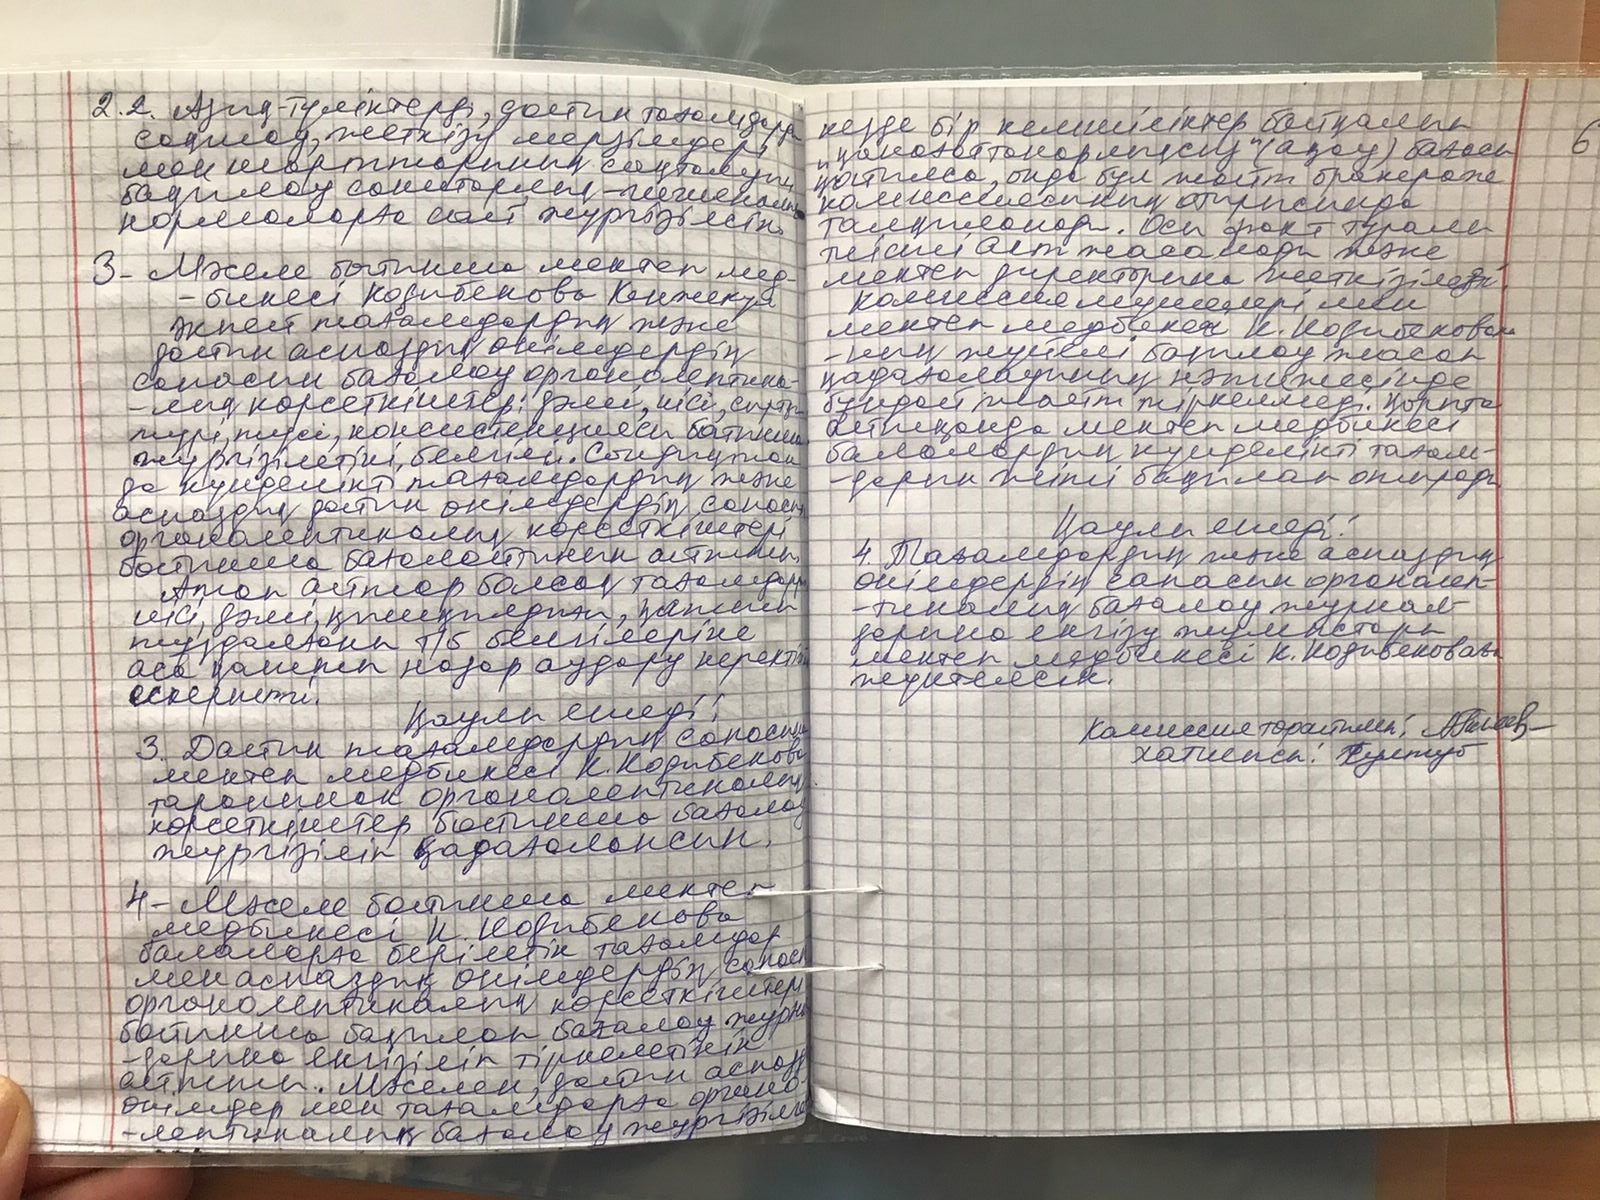 2.2. Азық-түліктерді, дайын тағамдарды
сақтау, жеткізу мерзімдері
мен шарттарының сақталуын
бақылау санитарлық-гигиеналық
нормаларға сай жүргізілсін.
3- Мәселе бойынша мектеп мед-
-бикесі Кодибекова Кенжекул
әкпей тағамдардың және
дайын аспаздық өнімдердің
сапасын бағалау органолептика-
-лық көрсеткіштері: дәмі, иісі, сыртқы
түрі, түсі, консистенциясы бойынша
жүргізілетіні белгілі. Сондықтан
да күнделікті тағамдардың және
аспаздық дайын өнімдердің сапасы
органолептикалық көрсеткіштері
бойынша бағаланатынын айтты.
Атап айтар болсақ тағамдардың
иісі, дәмі, қышқылдығы, қатты
тұздалғаны т/б белгілеріне
аса қатты назар аудару керектігін
ескертті.
Қаулы етеді:
3. Дайын тағамдардың сапасын
мектеп медбикесі К. Кодибекова
тарапынан органолептикалық
көрсеткіштер бойынша бағалау
жүргізіліп қадағалансын.
4- Мәселе бойынша мектеп
медбикесі К. Кодибекова
балаларға берілетін тағамдар
мен аспаздық өнімдердің сапасы
органолептикалық көрсеткіштері
бойынша бақылап бағалау журнал
-дарына енгізіліп тіркелетінін
айтты. Мәселен, дайын аспаздық
өнімдер мен тағамдарға органо-
-лептикалық бағалау жүргізілген
кезде бір кемшіліктер байқалып
"қанағаттанарлықсыз" (ақау) бағасы
қойылса, онда бұл жайт бракераж
комиссиясының отырысында
талқыланады. Осы факт туралы
тиісті акт жасалады және
мектеп директорына жеткізіледі.
Комиссия мүшелері мен
мектеп медбикесі К. Кодибекова
-ның жүйелі бақылау жасап
қадағалауының нәтижесінде
бұндай жайт тіркелмеді. Қорыта
айтқанда мектеп медбикесі
балалардың күнделікті тағам-
-дарын жіті бақылап отырады
6
Қаулы етеді:
4. Тағамдардың және аспаздық
өнімдердің сапасын органолеп-
-тикалық бағалау журнал-
дарына енгізу жұмыстары
мектеп медбикесі К. Кодибековаға
жүктелсін.
Комиссия төрайымы:
хатшысы: